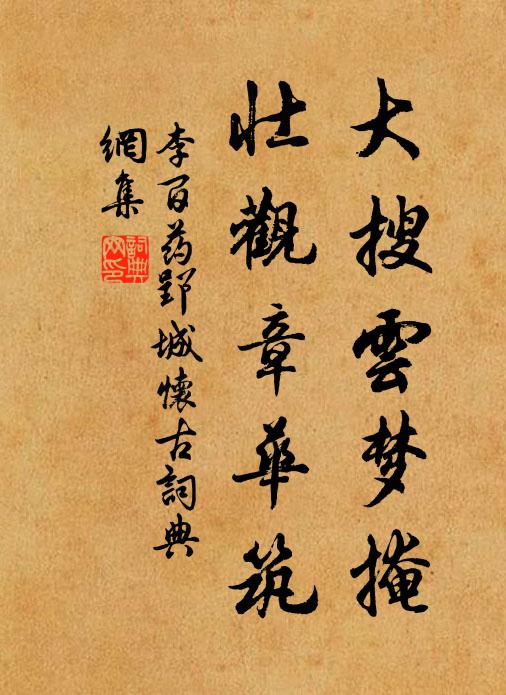 大搜雲梦掩
壮觀章华筑
李百药郢城懷古詞典
網集
詞典
网印